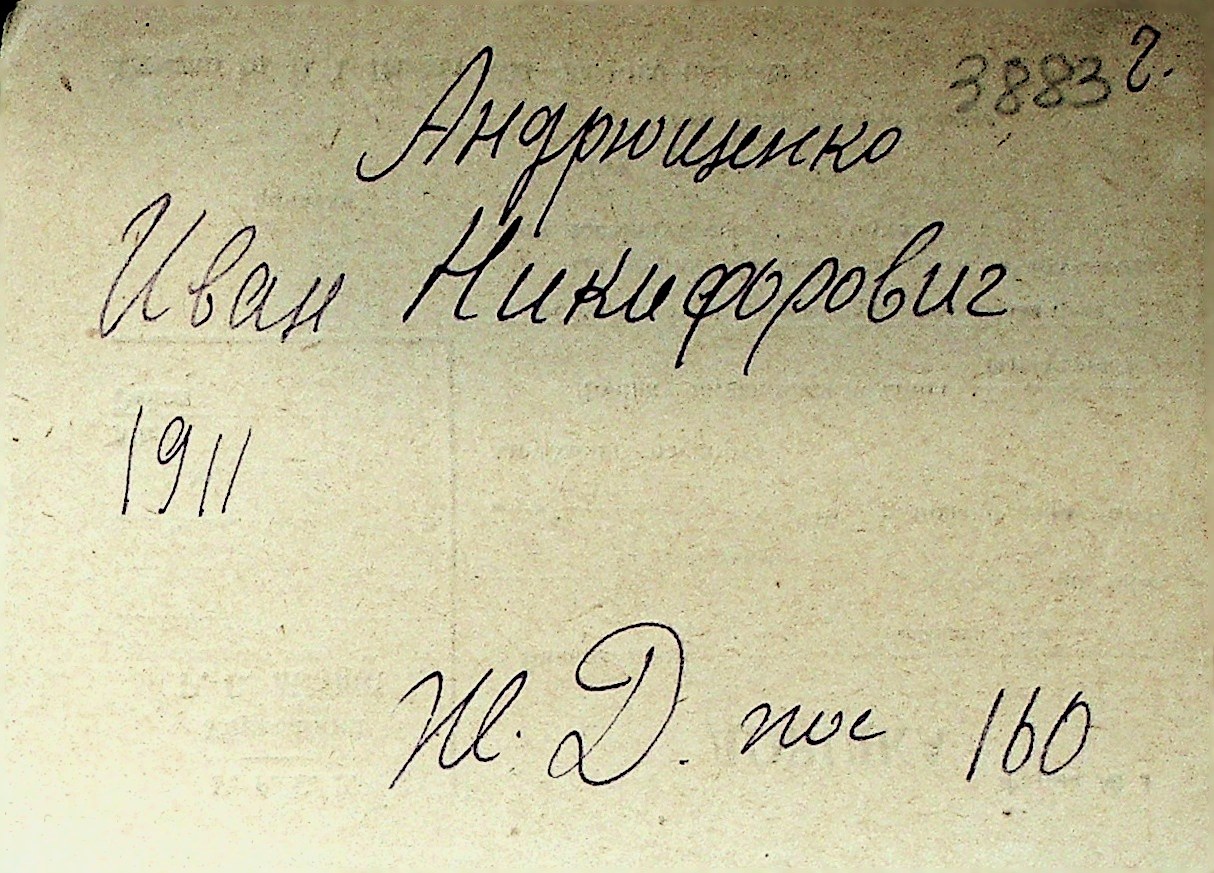 3883 г.
Андрющенко
Иван Никифорович
1911
Ж. Д. пос 160